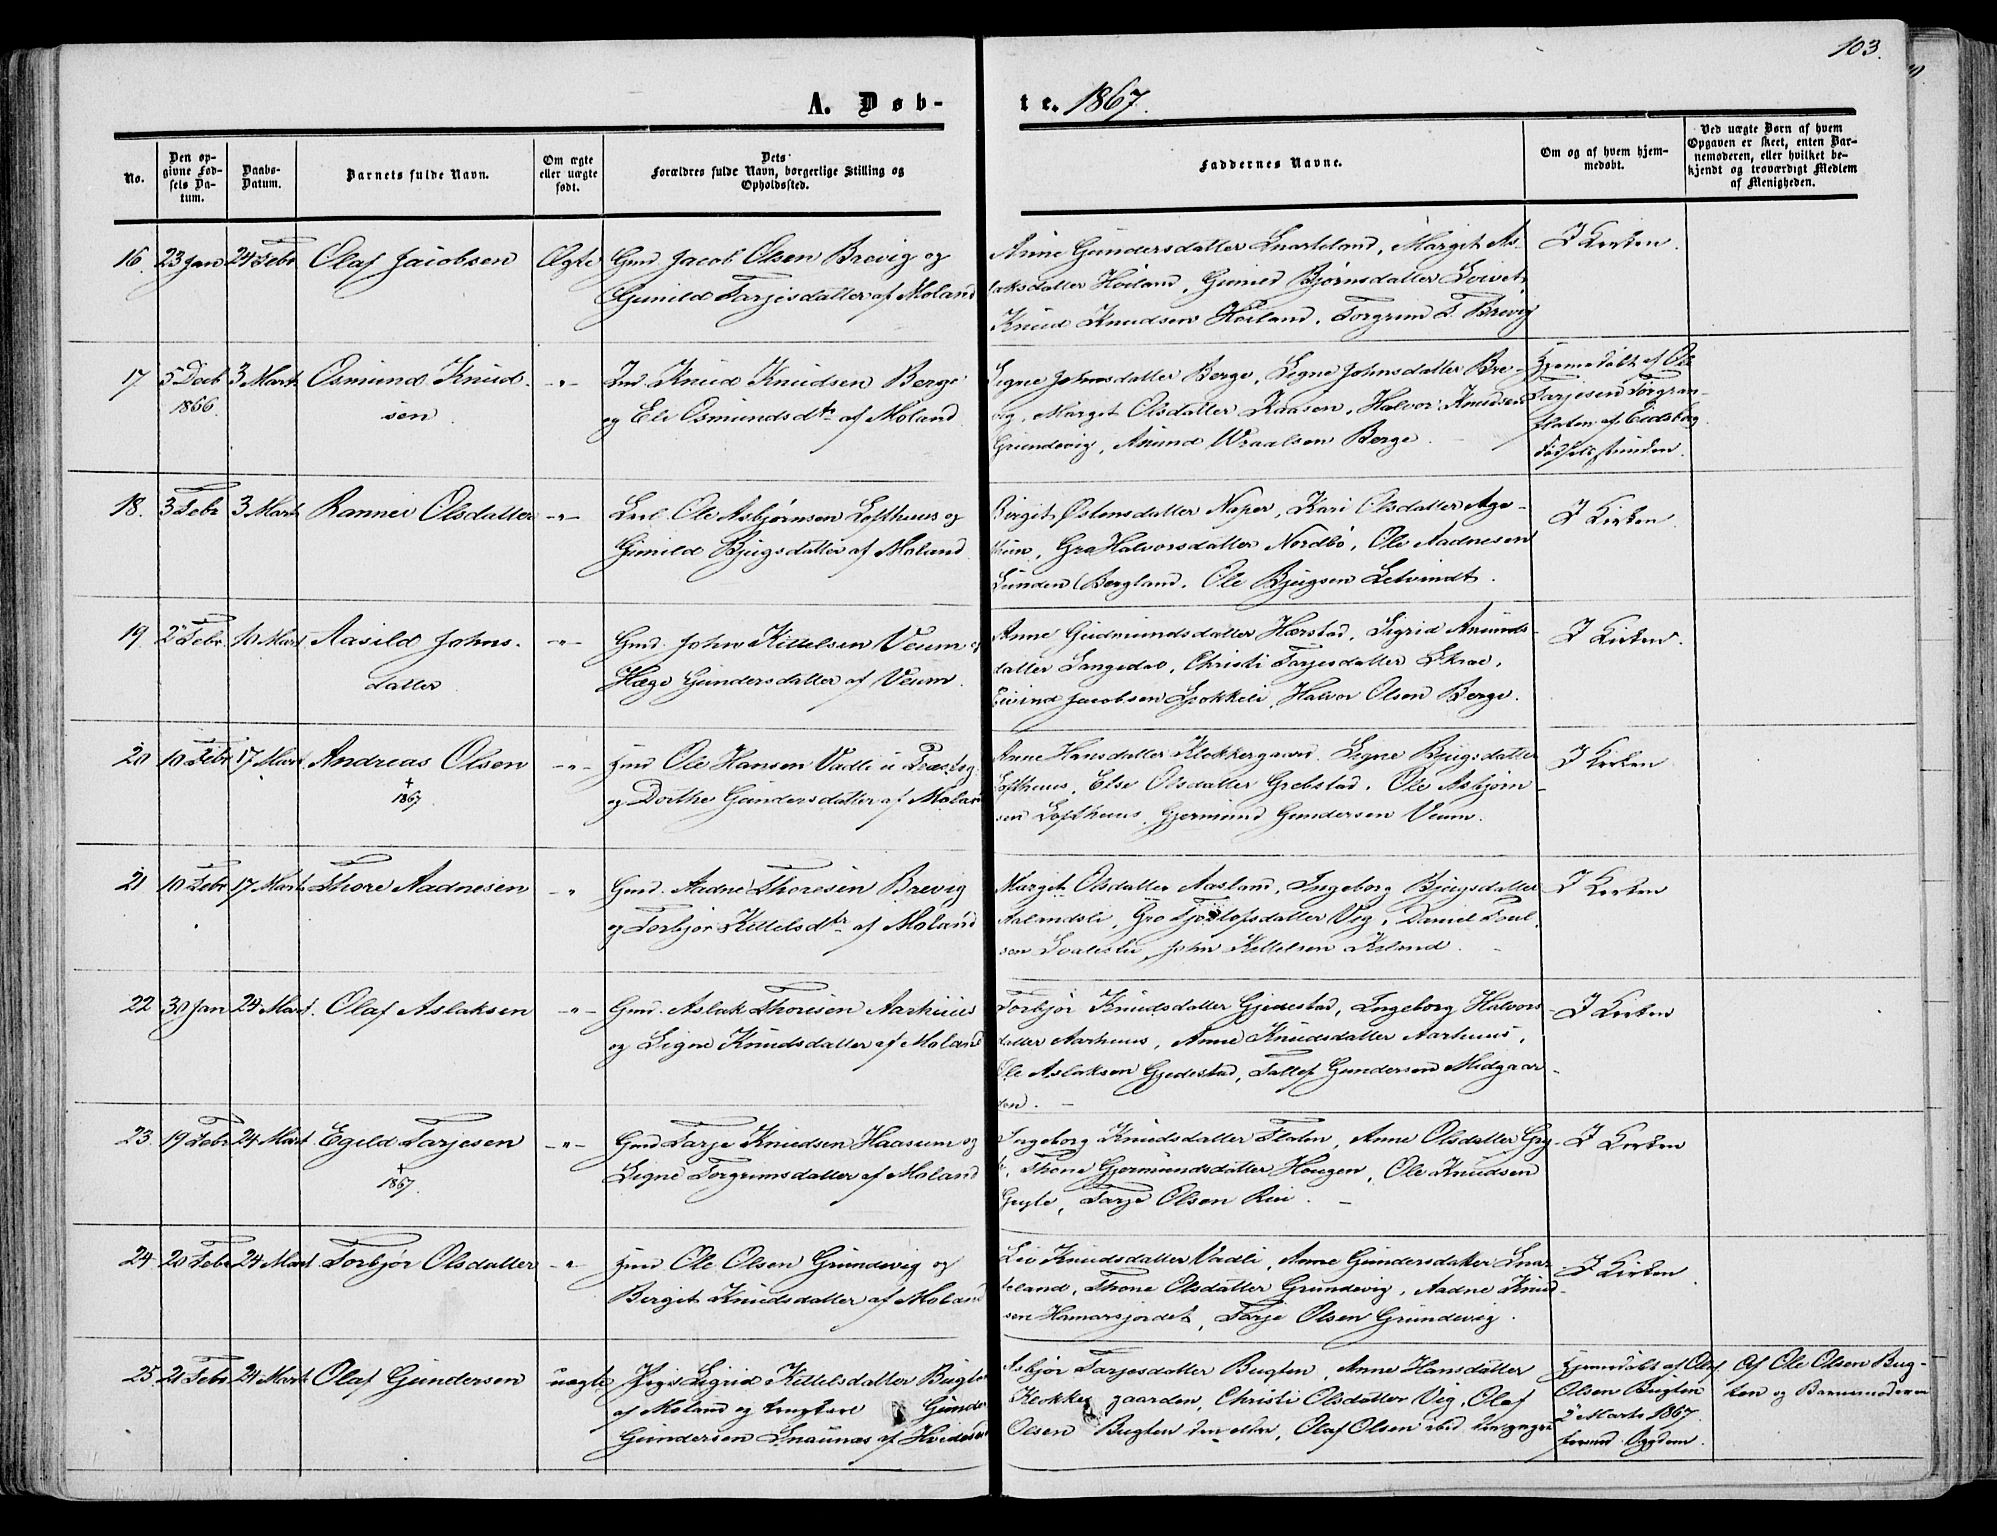 103.
A. Døb-
te. 1867.
No.
Den op-
givne Fød-
sels Da-
tum.
Daabs-
Datum.
Barnets fulde Navn.
Om ægte
eller uægte
født.
Dets
Forældres fulde Navn, borgerlige Stilling og
Opholdssted.
Faddernes Navne.
Om og af hvem hjem-
medøbt.
Ved uægte Børn af hvem
Opgaven er skeet, enten Bar-
nemoderen, eller hvilket be-
kjendt og troværdigt Medlem
af Menigheden.
16. 23 Jan 24 Febr Olaf Jacobsen Ægte Gmd. Jacob Olsen Brevig og
Gunild Tarjesdatter af Moland
Anne Gundersdatter Snarteland, Margit As-
laksdatter Høiland, Gunild Bjørnsdatter
Knud Knudsen Høiland, Torgrim T. Brevig
I Kirken.
17 5 Decb 3 Marts Osmund Knud- -"- Ind. Knud Knudsen Berge
1866. sen og Eli Osmundsdtr af Moland
Signe Johnsdatter Berge, Signe Johnsdatter Bre-
vig, Margit Olsdatter Kaasen, Halvor Knudsen
Grundevig, Anund Wraalsen Berge.
Hjemmedøbt af Ole
Tarjesen
flaten af Eidsborg
Fødselsstunden.
18. 3 Febr 3 Marts Rannei Olsdatter -"- Ole Asbjørnsen Lofthuus og
Gunild Bjugsdatter af Moland
Birgit Østensdatter Naper, Kari Olsdatter
Gro Halvorsdatter Nordbø, Ole Aadnesen
Lunden (Bergland, Ole Bjugsen
I Kirken
19. 2 Febr. 10 Mart Aasild Johns- -"- Gmd. John Kittelsen Veum og
datter. Hæge Gundersdatter af Veum.
Anne Gudmundsdatter Hærstad, Sigrid Anunds-
datter Christi Tarjesdatter
Eivind Jacobsen Spokkeli, Halvor Olsen Berge.
I Kirken.
20 10 Febr 17 Mart. Andreas Olsen -"- Hmd Ole Hansen Vadli u Præsteg.
† 1867 og Dorthe Gundersdatter af Moland
Anne Hansdatter Klokkergaard. Signe Bjugsdatter
Lofthuus, Else Olsdatter Grebstad. Ole Asbjørn-
sen Lofthuus, Gjermund Gundersen Veum.
I Kirken
21 10 Febr 17 Mart. Thore Aadnesen -" Gmd. Aadne Thoresen Brevig
og Torbjør Kittelsdtr af Moland
Margit Olsdatter Aasland, Ingeborg Bjugsdatter
Aalandsli, Gro Tjostolfsdatter Veg, Daniel Poul-
sen John Kittelsen
I Kirken
22 30 Jan 24 Mart. Olaf Aslaksen -"- Gmd. Aslak Thoresen Aarhuus
og Signe Knudsdatter af Moland
Torbjør Knudsdatter Gjedestad, Ingeborg Halvors-
datter Aarhuus, Anne Knudsdatter Aarhuus,
Ole Aslaksen Gjedestad, Tallef Gundersen Midgaar-
den. -
I Kirken
23. 19 Febr 24 Mart. Egild Tarjesen -"- Gmd Tarje Knudsen Haasum og
† 1867. Signe Torgrimsdatter af Moland
Ingeborg Knudsdatter Flaten, Anne Olsdatter
Thone Gjermundsdatter Haugen, Ole Knudsen
Tarje Olsen -
I Kirken
24 20 Febr 24 Mart Torbjør Olsdatter -" Hmd Ole Olsen Grundevig og
Berget Knudsdatter af Moland
Liv Knudsdatter Vadli, Anne Gundersdatter Snar-
teland, Thone Olsdatter Grundevig, Aadne Knud-
sen Hamarsjordet, Tarje Olsen Grundevig.
I Kirken
25. 21 Febr 24 Mart Olaf Gundersen uægte Pige Sigrid Kittelsdatter Bugten
af Moland og Gunder
Gundersen Snaunæs af Hvidesei
Asbjør Tarjesdatter Bugten, Anne Hansdatter
Klokkergaarden, Christi Olsdatter Veg, Olaf
Olsen Bugten den eldre, Olaf Olsen ibid den yngre
Hjemmedøbt af Olaf
Olsen Bugten
2 Marts 1867.
formed. Sygdom.
Af Ole Olsen Bug-
ten og Barnemoderen